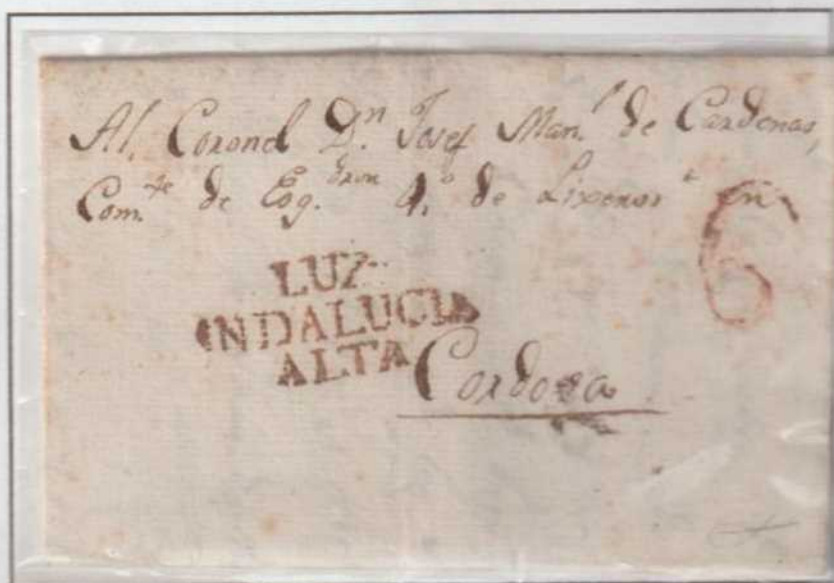 Al. Coronel Dn. Josef Man.l de Cardenas,
Com.te de Esq.dron 4.o de Lixeros en
6
LUZ
ANDALUCIA
ALTA
Cordova